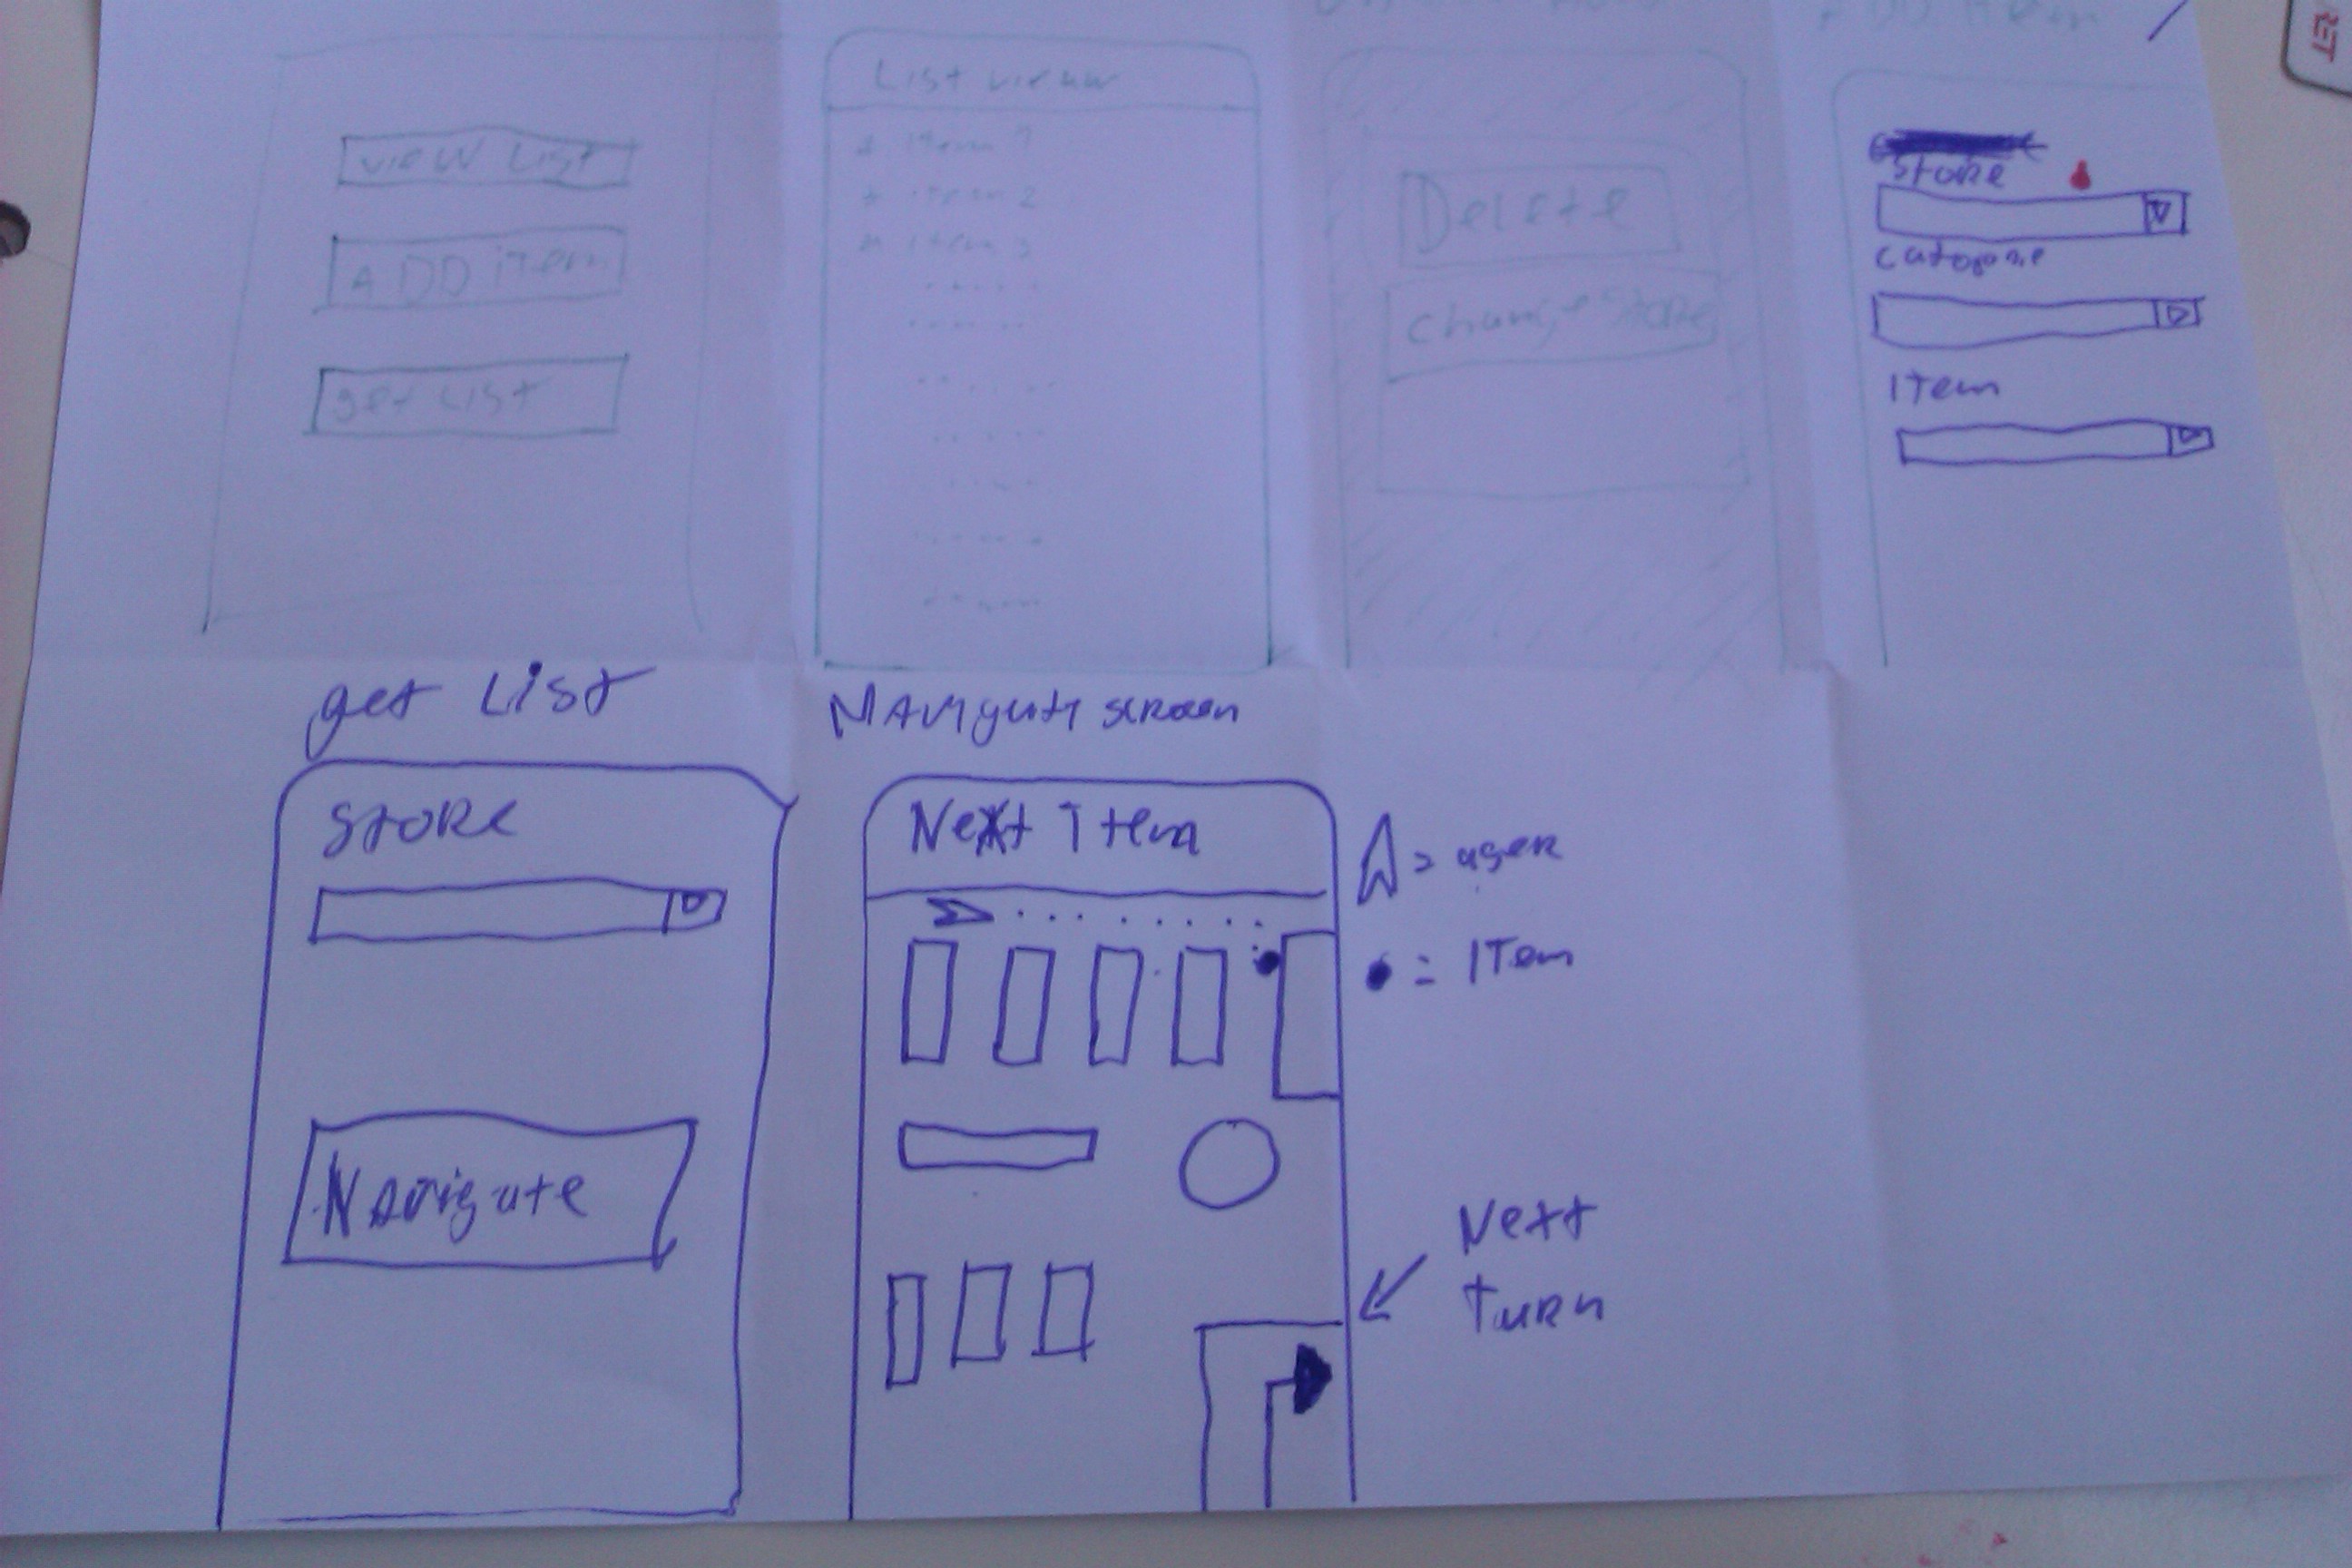 View List
ADD item
get List
List view
item 1
item 2
item 3
Delete
change store
ADD item
Store
Item
get List
STORE
Navigate
screen
Next Item
= user
= ITem
Next
Turn